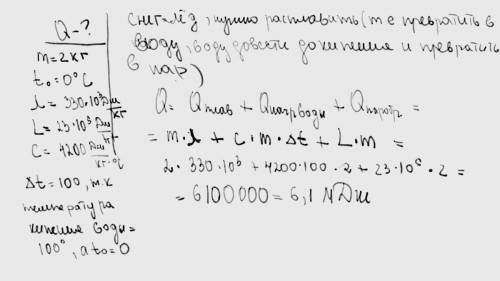 Q - ?
m = 2 кг
t₀ = 0°C
λ = 330·10³ Дж/кг
L = 23·10³ Дж/кг
C = 4200 Дж/кг·°C
Δt = 100, т.к
температура
кипения воды =
100°, а t₀ = 0
снег = лёд, нужно расплавить (т е превратить в
воду, воду довести до кипения и превратить
в пар)
Q = Qплав + Qнагр воды + Qпаробр =
= m·λ + c·m·Δt + L·m =
2·330·10³ + 4200·100·2 + 23·10⁵·2 =
= 6100000 = 6,1 МДж